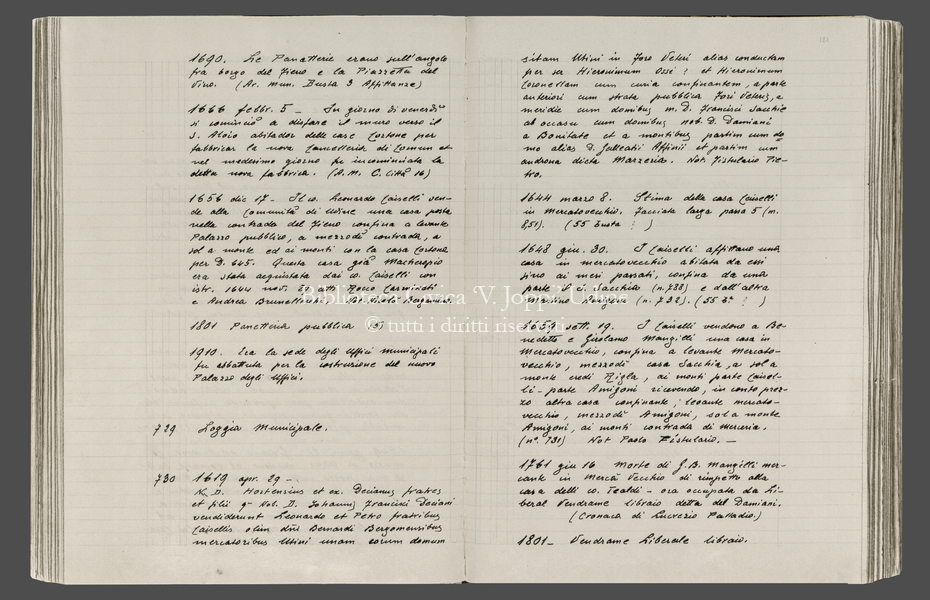 1690. Le Panatterie erano sull'angolo
fra borgo del Fieno e la Piazzetta del
Vino. (Ar. Mun. Busta 3 Affittanze)
1666 febbr. 5 - In giorno di venerdì
si cominciò a disfare il muro verso il
S. Aloio abitador delle case Cortone per
fabbricar la nova Cancelleria di Comun et
nel medesimo giorno fu incominciata la
detta nova fabbrica. (A.M. C. Città 16)
1656 dic 17. Il co. Leonardo Caiselli ven-
de alla Comunità di Udine una casa posta
nella contrada del Fieno confina a levante
Palazzo pubblico, a mezzodì contrada, a
sol a monte ed ai monti con la casa Cortona
per D. 645. Questa casa già
era stata acquistata dai co. Caiselli con
istr. 1644 nov. 29 atti Rocco
e Andrea Brunelleschi
1801 Panetteria pubblica
1910. Era la sede degli Uffici municipali
fu abbattuta per la costruzione del nuovo
Palazzo degli Uffici.
729 Loggia Municipale.
730 1619 apr. 29 -
N. D. Hortensius et ex. Decianus fratres
et filii q. Nob. D. Johannis Francisci Deciani
vendiderunt Leonardo et Petro fratribus
Caisellis olim dni Bernardi Bergomensibus
mercatoribus Utini unam eorum domum
sitam Utini in Foro Veteri alias conductam
per ser Hieronimum Ossi ? et Hieronimum
Coronellam cum curia confinantem, a parte
anteriori cum strata pubblica Fori Veteris, a
meridie cum domibus m. D. Francisci Sacchie
ab occasu cum domibus nob. D. Damiani
a Bonitate et a montibus partim cum do-
mo alias D. Galleatii Affinii et partim cum
androna dicta Marzeria. Not. Fistulario Pie-
tro.
1644 marzo 8. Stima della casa Caiselli
in Mercatovecchio. Facciata larga passa 5 (n.
851). (55 busta ? )
1648 giu. 30. I Caiselli affittano una
casa in mercatovecchio abitata da essi
fino ai mesi passati, confina da una
parte il di Sacchia (n. 728) e dall'altra
Amigoni (n. 732). (55 Bª ? )
1659 sett. 19. I Caiselli vendono a Be-
nedetto e Girolamo Mangilli una casa in
Mercatovecchio, confina a levante Mercato-
vecchio, mezzodì casa Sacchia, a sol a
monte eredi Rigla, ai monti parte Caisel-
li - parte Amigoni ricevendo, in conto prez-
zo altra casa confinante; levante mercato-
vecchio, mezzodì Amigoni, sol a monte
Amigoni, ai monti contrada di Merceria.
(nº. 731) Not Paolo Fistulario. -
1761 giu 16 Morte di G.B. Mangilli mer-
cante in Mercà Vecchio di rimpetto alla
casa delli co. Tealdi - ora occupata da Li-
beral Vendrame libraio detta del Damiani.
(Cronaca di Lucrezio Palladio.)
1801 - Vendrame Liberale libraio.
Biblioteca Civica 'V. Joppi' Udine
© tutti i diritti riservati